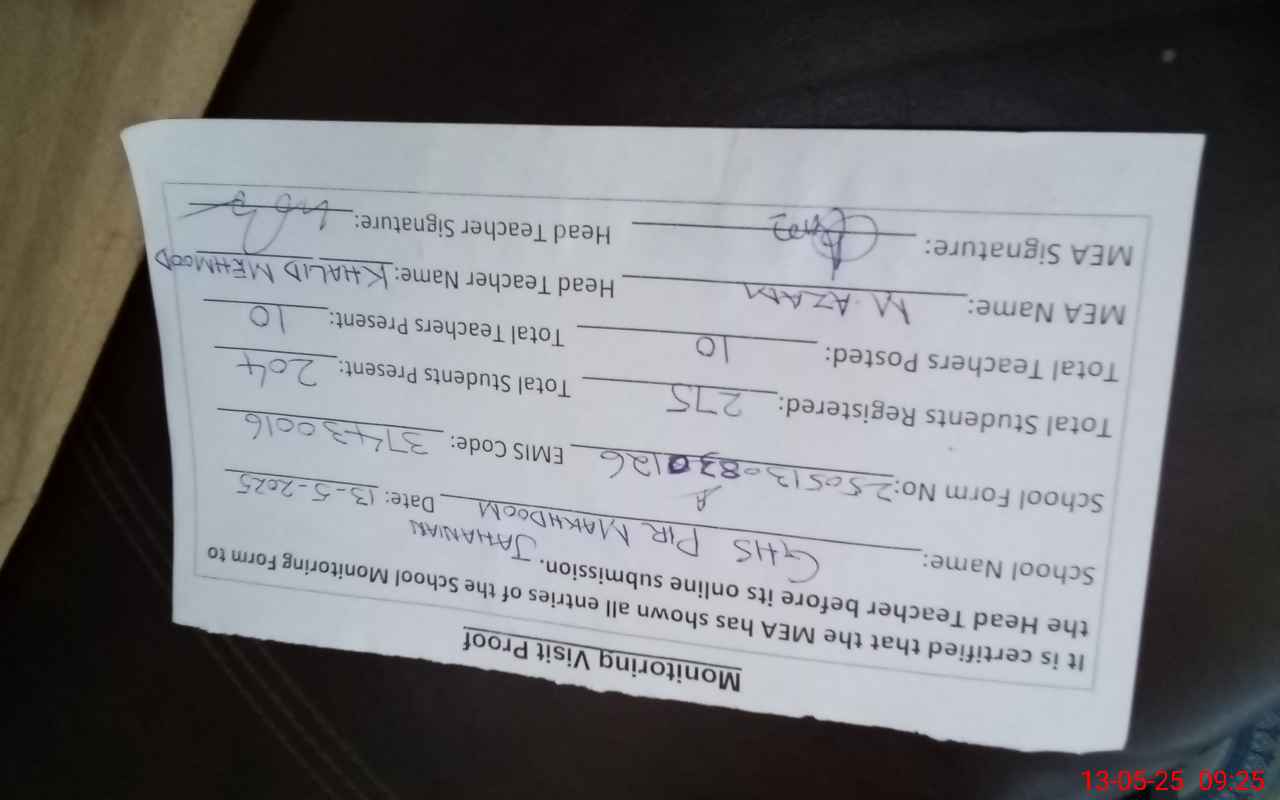 Monitoring Visit Proof
It is certified that the MEA has shown all entries of the School Monitoring Form to
the Head Teacher before its online submission. JAHANIAN
School Name: GHS PIR MAKHDOOM Date: 13-5-2025
School Form No: EMIS Code: 37430016
Total Students Registered: 275 Total Students Present: 204
Total Teachers Posted: 10 Total Teachers Present: 10
MEA Name: M. AZAM Head Teacher Name: KHALID MEHMOOD
MEA Signature: Head Teacher Signature:
13-05-25 09:25